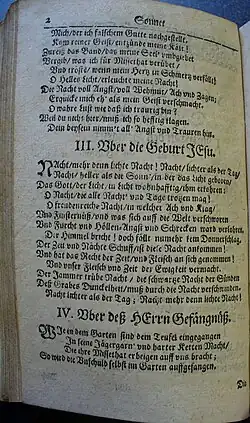 2 Sonnet
Mich/der ich falschem Gutte nachgestellt.
Kom reiner Geist/entzünde meine Kält!
Zureiß das Band/das meine Seel umbgibet
Vergib/was ich für Missethat verübet/
Und tröst/wenn mein Hertz in Schmertz verfält!
O Helles Licht/erleuchte meine Nacht!
Die Nacht voll Angst/voll Wehmut/Ach und Zagen;
Erquicke mich eh' als mein Geist verschmacht.
O wahre Lust wie daß ich traurig bin?
Weil du nicht hier/muß ich so hefftig klagen.
Dein beysein nimm't all' Angst und Trauren hin.
III. Uber die Geburt JEsu.
NAcht/mehr denn lichte Nacht! Nacht/lichter als der Tag/
Nacht/heller als die Sonn'/in der das Licht geboren/
Das Gott/der Licht/in Licht wohnhafftig/ihm erkohren:
O Nacht/die all' Nächt' und Tage trotzen mag!
O freudenreiche Nacht/in welcher Ach und Klag/
Und Finsternüß/und was sich auff die Welt verschworen
Und Furcht und Höllen-Angst und Schrecken ward verlohren.
Der Himmel bricht! doch fällt nunmehr kein Donnerschlag.
Der Zeit und Nächte Schuff/ist diese Nacht ankommen!
Und hat das Recht der Zeit/und Fleisch an sich genommen!
Und unser Fleisch und Zeit der Ewigkeit vermacht.
Der Jammer trübe Nacht/die schwartze Nacht der Sünden
Deß Grabes Dunckelheit/muß durch die Nacht verschwinden.
Nacht lichter als der Tag; Nacht mehr denn lichte Nacht!
IV. Uber deß HErrn Gefängnüß.
WIe in dem Garten sind dem Teufel eingegangen
In seine Jägergarn' und harter Ketten Macht/
Die ihre Missethat erbeigen auff uns bracht;
So wird die Unschuld selbst im Garten auffgefangen.
Die